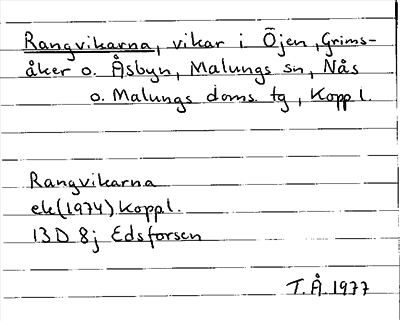 Rangvikarna, vikar i Öjen, Grims-
åker o. Åsbyn, Malungs sn, Nås
o. Malungs doms. tg, Kopp l.
Rangvikarna
ek (1974) Kopp l.
13D 8j Edsforsen
T.Å. 1977